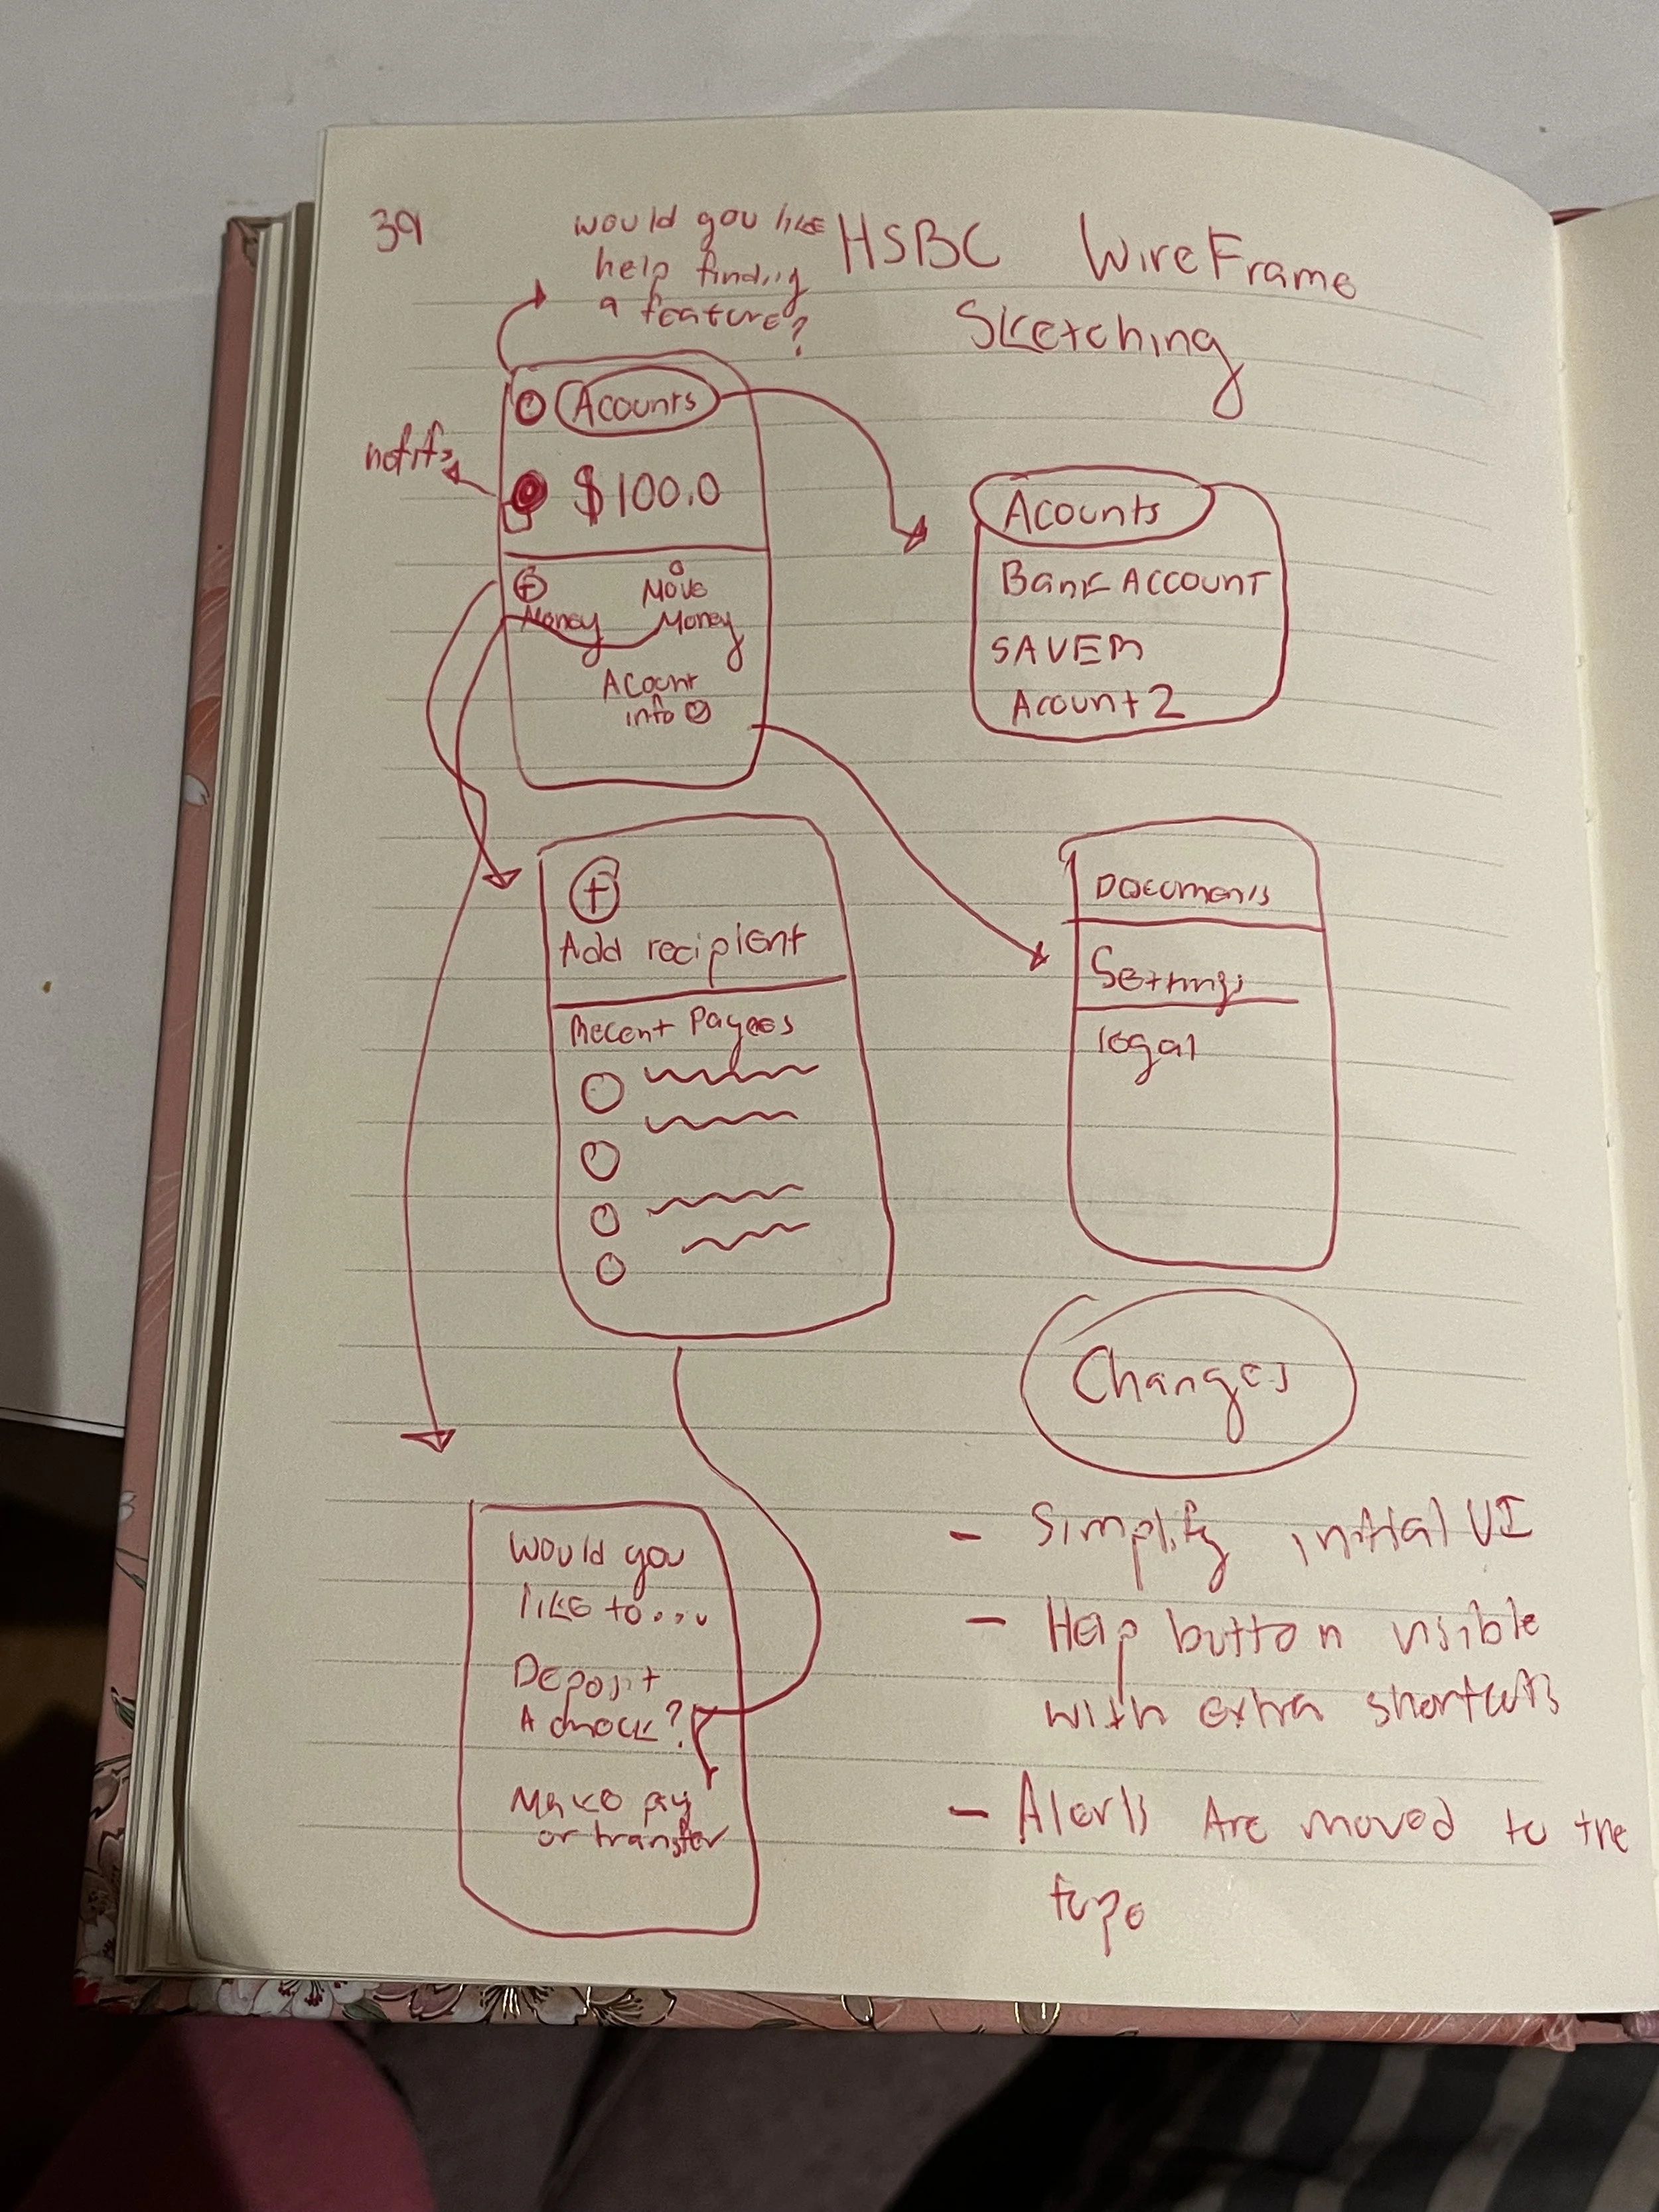 39
would you like
help finding
a feature?
HSBC WireFrame
Sketching
Acounts
notifs
$100.0
+
Money
Move
Money
Acount
info
Acounts
Bank Account
SAVER
Acount 2
+
Add recipient
Recent Payees
Documents
Settings
legal
Changes
- Simplify initial UI
- Help button visible
with extra shortcuts
- Alerts Are moved to the
Would you
like to...
Deposit
A check?
Make pay
or transfer